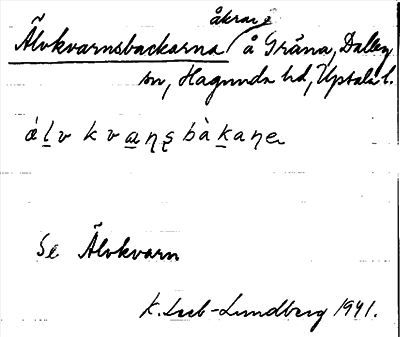 åkrar
Älvkvarnsbackarna å Gråna, Dalby
sn, Hagunda hd, Upsala l.
ǽlv kvaɳʂbàkaɳa
Se Älvkvarn
K. Leeb-Lundberg 1941.